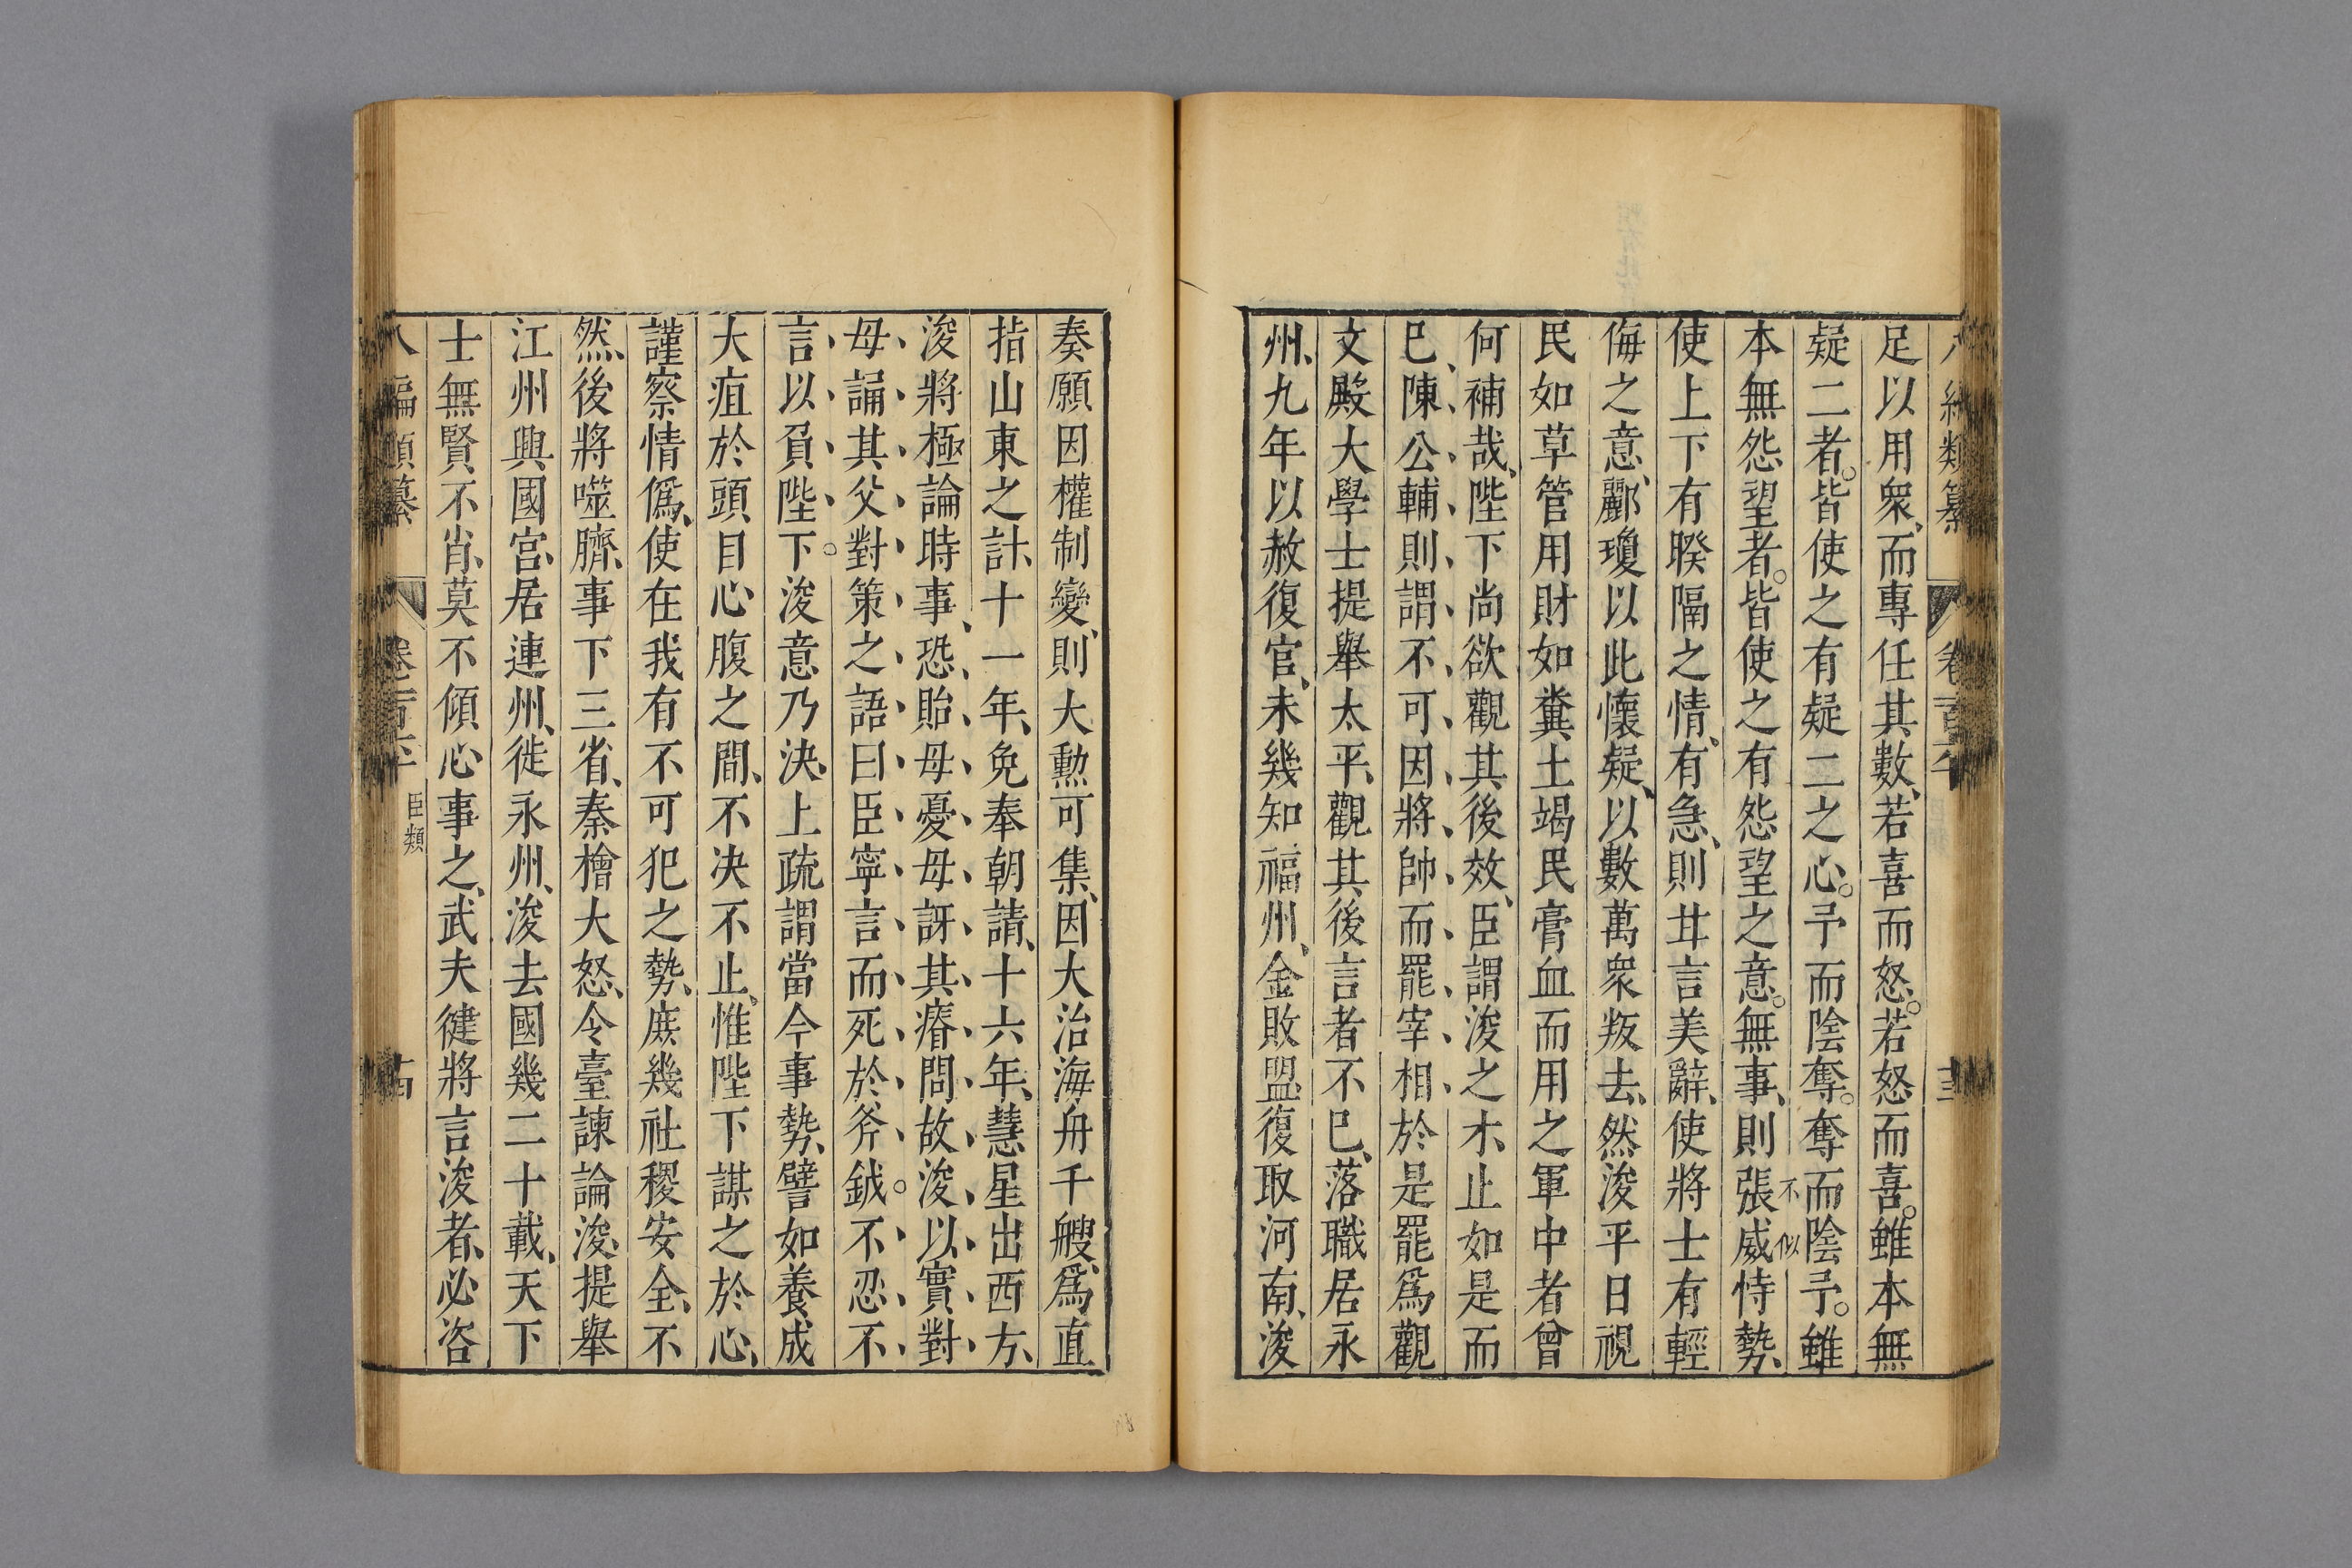 足以用衆、而專任其數、若喜而怒。若怒而喜。雖本無
疑二者。皆使之有疑二之心。予而陰奪。奪而陰予。雖
本無怨望者。皆使之有怨望之意。無事、則張威恃勢、
不似
使上下有暌隔之情、有急、則甘言美辭、使將士有輕
侮之意、酈瓊以此懷疑、以數萬衆叛去、然浚平日視
民如草管用財如糞土竭民膏血而用之軍中者曾
何補哉、陛下尚欲觀其後效、臣謂浚之才、止如是而
巳、陳公輔則謂不可因將帥而罷宰相於是罷爲觀
文殿大學士提舉太平、觀其後言者不巳、落職居永
州、九年以赦復官、未幾知福州、金敗盟復取河南、浚
奏願因權制變、則大勲可集、因大治海舟千艘、爲直
指山東之計、十一年、免奉朝請、十六年、慧星出西方、
浚將極論時事、恐貽母憂母訝其瘠問故浚以實對
母誦其父對策之語曰臣寧言而死於斧鉞。不忍不
言以負陛下。浚意乃決、上疏謂當今事勢、譬如養成
大疽於頭目心腹之間、不决不止、惟陛下謀之於心、
謹察情僞、使在我有不可犯之勢、庶幾社稷安全、不
然、後將噬臍、事下三省、秦檜大怒、令臺諫論浚、提舉
江州興國宮、居連州、徙永州、浚去國幾二十載、天下
士無賢不肖、莫不傾心事之、武夫健將言浚者、必咨
卷百 臣類